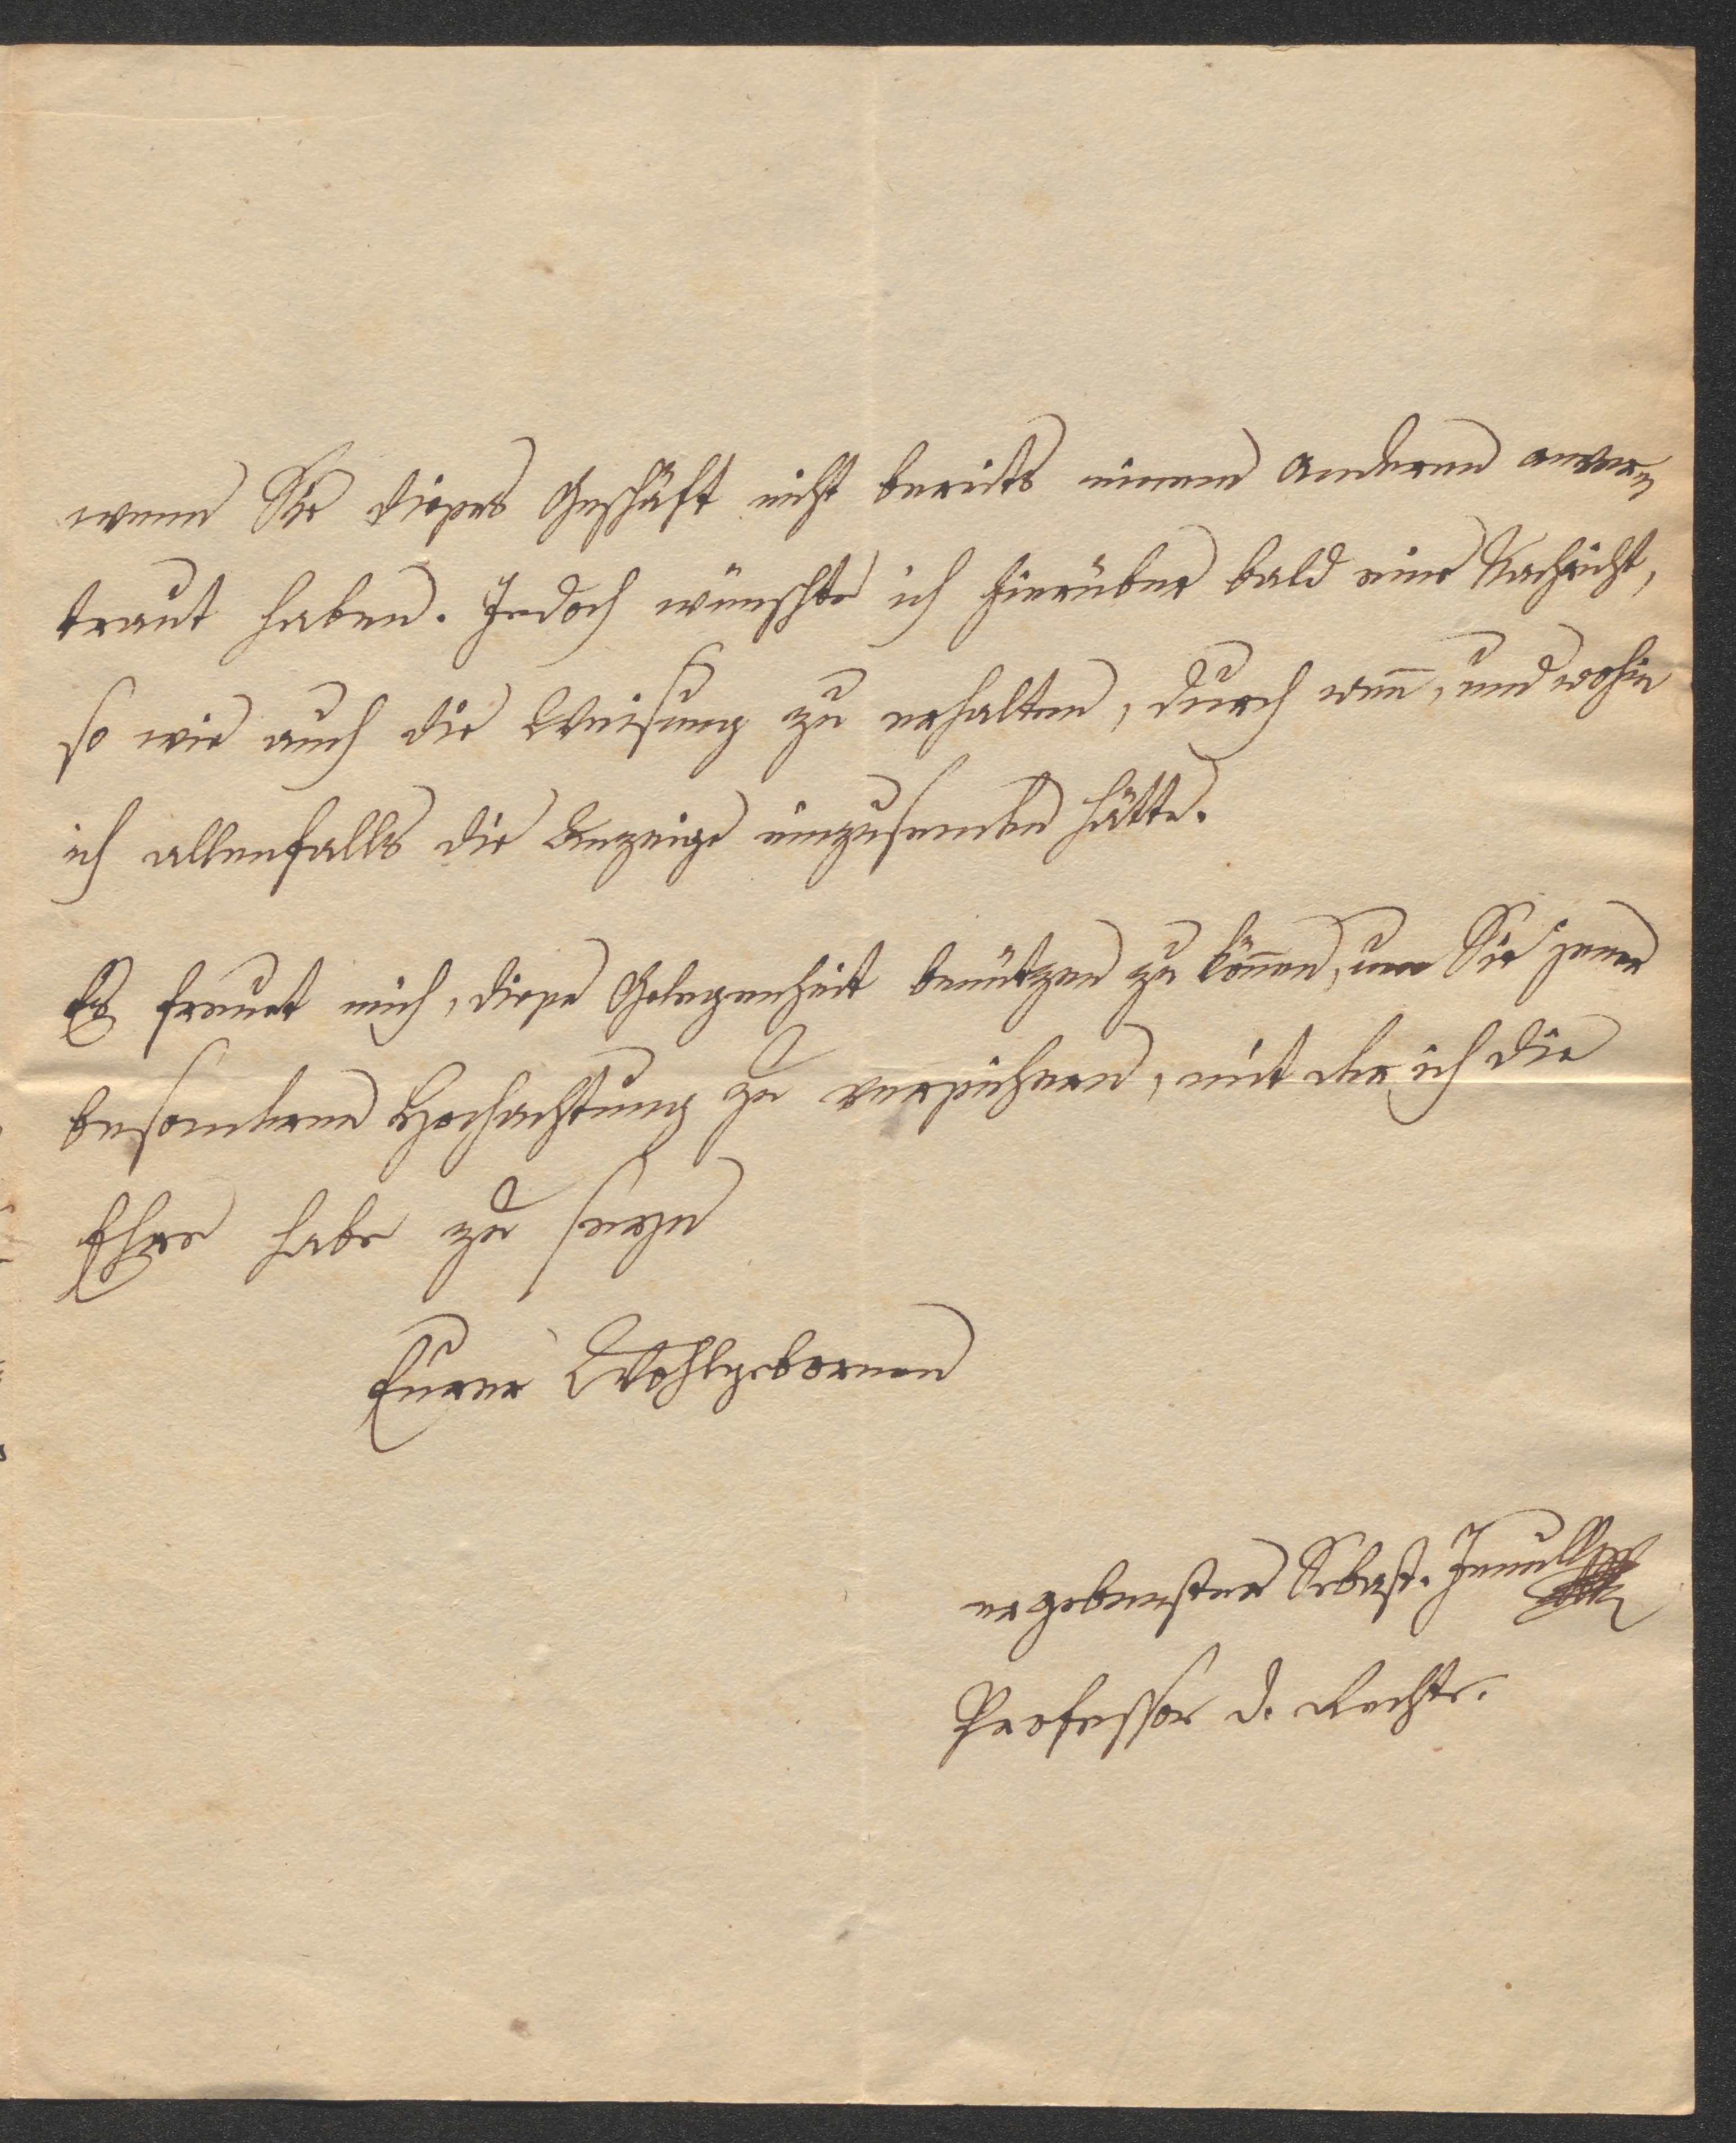 wenn Sie dieses Geschäft nicht bereits einem anderen anver=
traut haben. Jedoch wünschte ich hierüber bald eine Nachricht,
so wie auch die Weisung zu erhalten, durch wen̅, und wohin
ich allenfalls die Anzeige einzusenden hätte.
Es freuet mich, diese Gelegenheit benützen zu kön̅en, um Sie jener
besonderen Hochachtung zu versichern, mit der ich die
Ehre habe zu seyn
Eurer Wohlgebornen
ergebenster Sebast. Jenull
Professor d. Rechte.